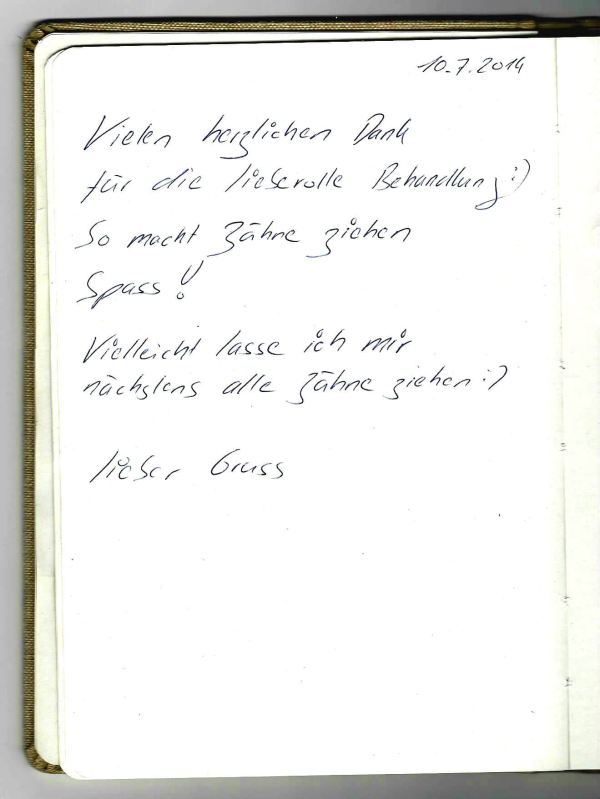 10.7.2014
Vielen herzlichen Dank
für die liebevolle Behandlung :)
So macht Zähne ziehen
Spass!
Vielleicht lasse ich mir
nächstens alle Zähne ziehen :)
lieber Gruss